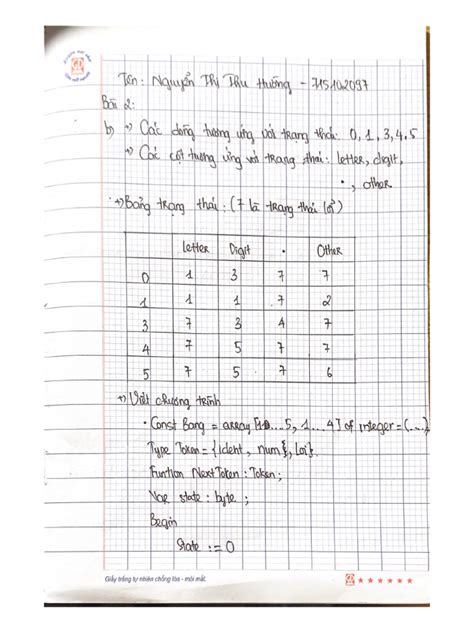 Tên: Nguyễn Thị Thu Hường - 715102097
Bài 2:
b) +) Các dòng tương ứng với trạng thái: 0, 1, 3, 4, 5
+) Các cột tương ứng với trạng thái: letter, digit,
•, other
+) Bảng trạng thái: (7 là trạng thái lỗi)
letter Digit • Other
0 1 3 7 7
1 1 1 7 2
3 7 3 4 7
4 7 5 7 7
5 7 5 7 6
+) Viết chương trình
• Const Bang = array [0...5, 1...4] of integer = (...);
Type Token = {Ident, num}, Loi};
Funtion NextToken: Token;
Var state: byte;
Begin
State := 0
Giấy trắng tự nhiên chống lóa - mỏi mắt.